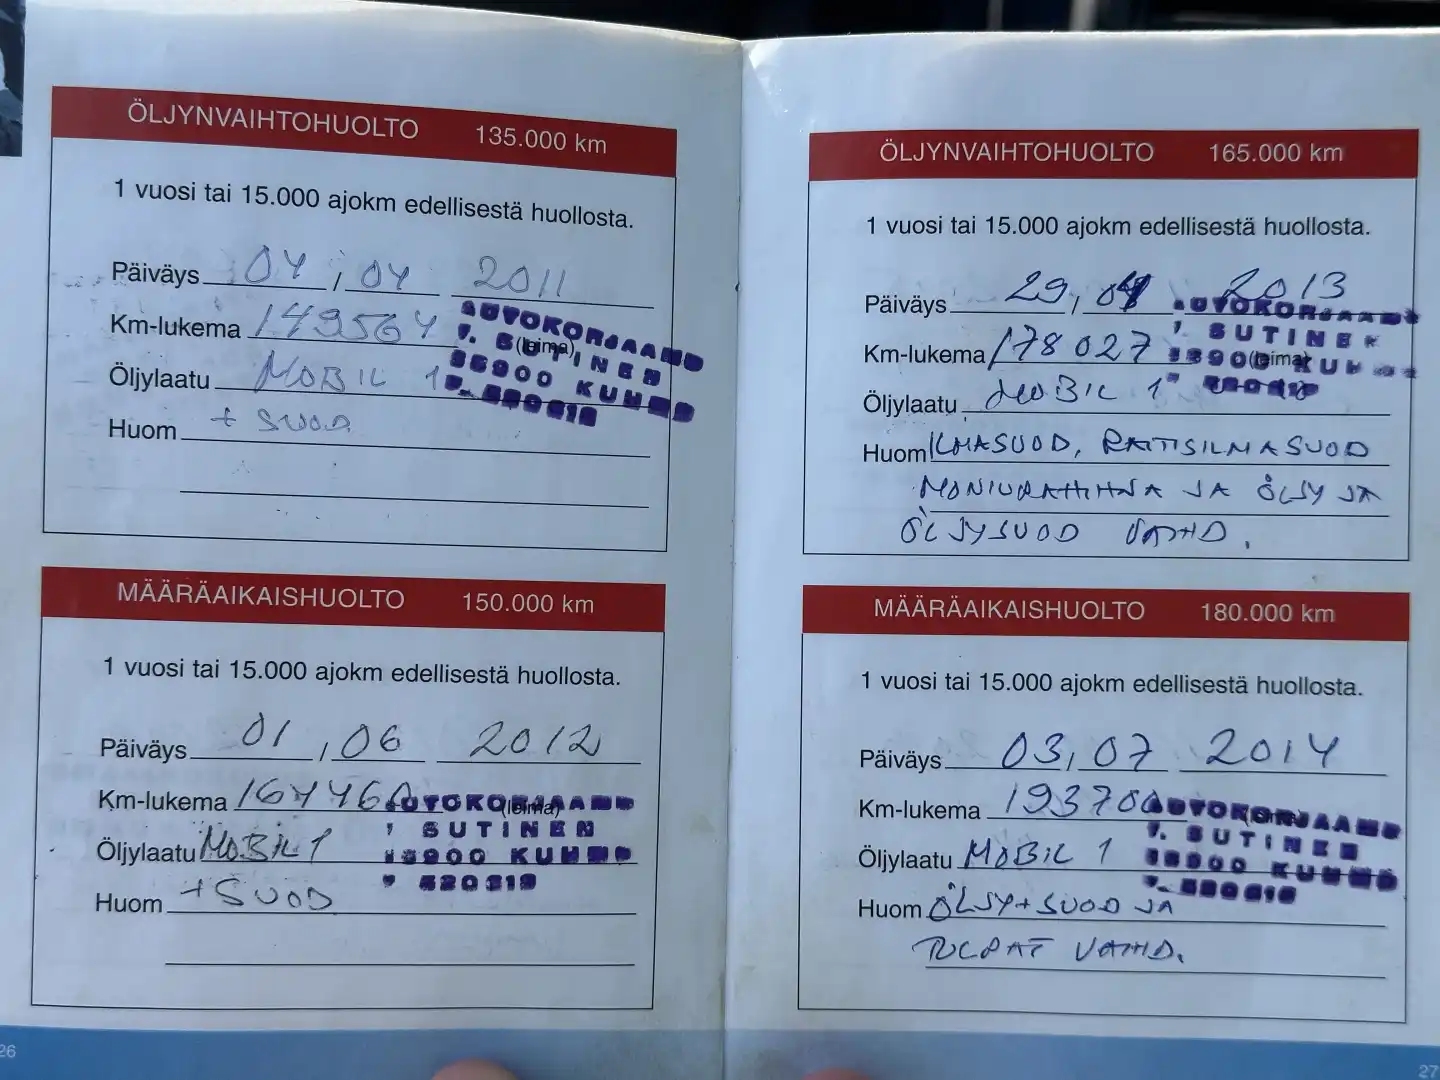 ÖLJYNVAIHTOHUOLTO 135.000 km
1 vuosi tai 15.000 ajokm edellisestä huollosta.
Päiväys 04, 04 2011
Km-lukema 149564
(leima)
Öljylaatu MOBIL 1
Huom + SUOD
AUTOKORJAAMO
T. SUTINEN
88900 KUHMO
MÄÄRÄAIKAISHUOLTO 150.000 km
1 vuosi tai 15.000 ajokm edellisestä huollosta.
Päiväys 01, 06 2012
Km-lukema 164460
(leima)
Öljylaatu MOBIL 1
Huom + SUOD
AUTOKORJAAMO
SUTINEN
88900 KUHMO
26
ÖLJYNVAIHTOHUOLTO 165.000 km
1 vuosi tai 15.000 ajokm edellisestä huollosta.
Päiväys 29, 2013
Km-lukema 178027
(leima)
Öljylaatu MOBIL 1
Huom ILMASUOD, RAITISILMASUOD
MONIURAHIHNA JA ÖLJY JA
ÖLJYSUOD VAIHD.
AUTOKORJAAMO
T. SUTINEN
88900 KUHMO
MÄÄRÄAIKAISHUOLTO 180.000 km
1 vuosi tai 15.000 ajokm edellisestä huollosta.
Päiväys 03, 07 2014
Km-lukema 193700
Öljylaatu MOBIL 1
Huom ÖLJY + SUOD JA
TULPAT VAIHD.
AUTOKORJAAMO
T. SUTINEN
88900 KUHMO
27